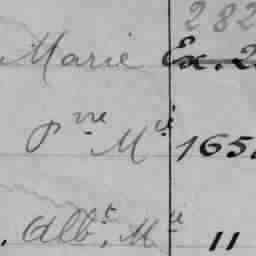 282
Marie Ex. 2
P^ne M^ie 165.
. Alb^t. M^ie 11